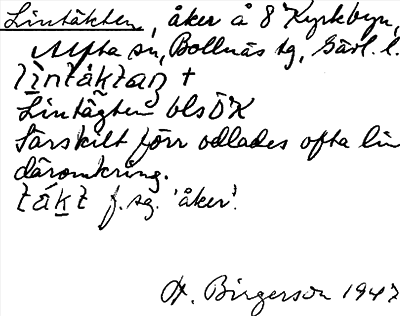 Lintäkten, åker å 8 Kyrkbyn,
Alfta sn, Bollnäs tg, Gävl. l.
Lintägten blsÖK
Särskilt förr odlades ofta lin
däromkring.
tákt f. sg. 'åker'.
A. Birgerson 1947